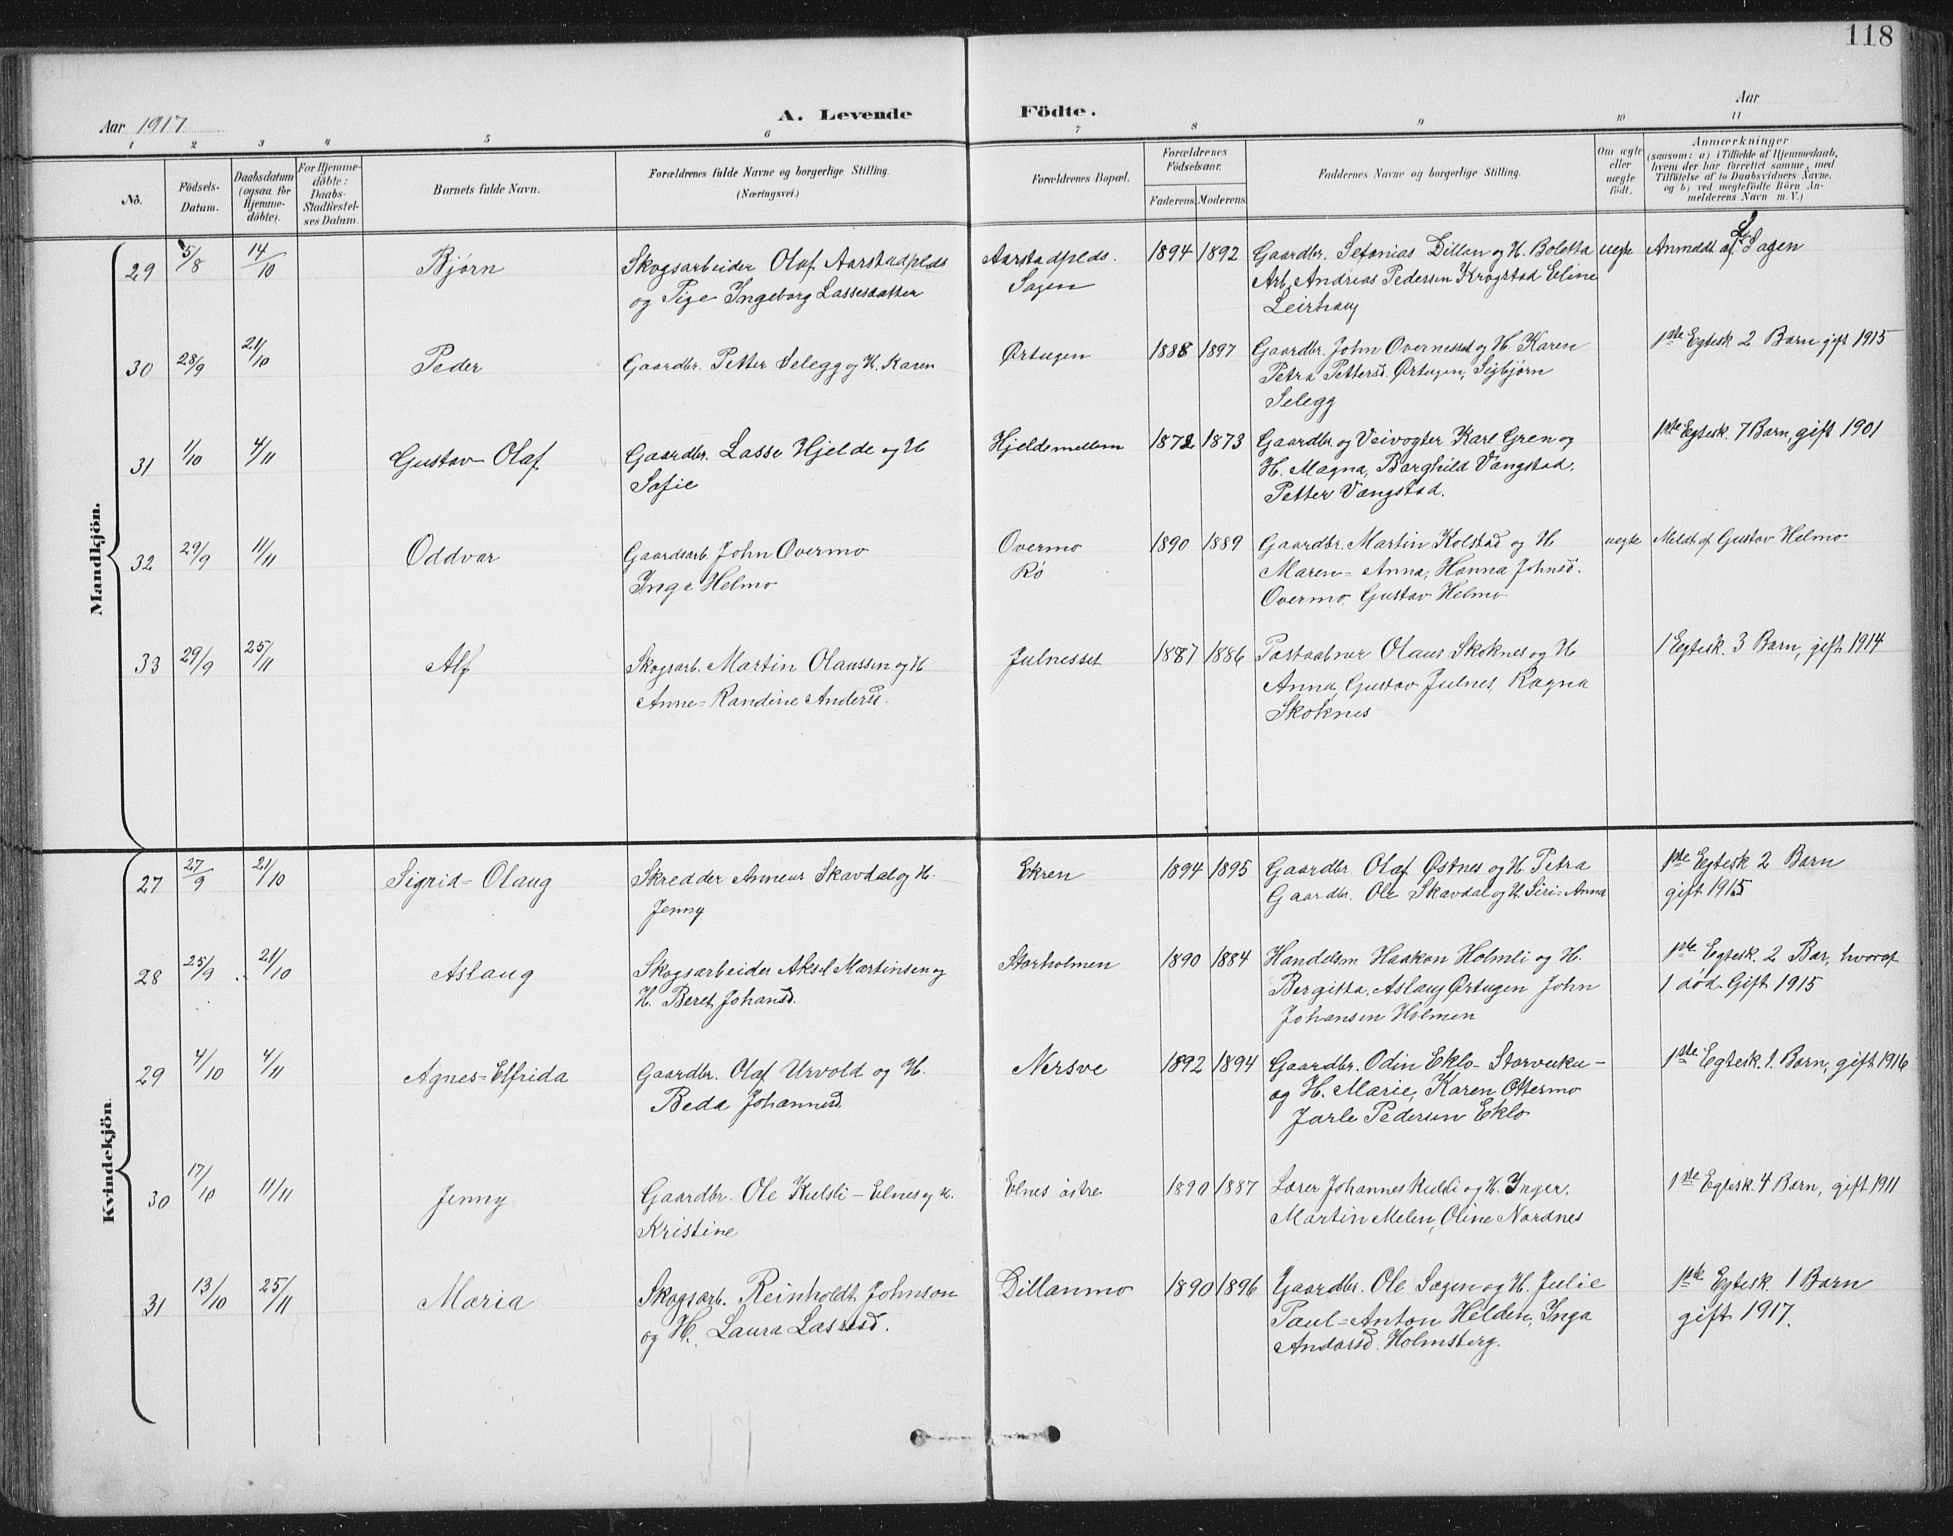 118
Aar 1917
A. Levende
Födte.
Aar
1 2 3 4 5 6 7 8 9 10 11
No.
Födsels-
Datum.
Daabsdatum
(ogsaa for
Hjemme-
døbte).
For Hjemme-
døbte:
Daabs-
Stadfæstel-
ses Datum.
Barnets fulde Navn.
Forældrenes fulde Navne og borgerlige Stilling.
(Næringsvei.)
Forældrenes Bopæl.
Forældrenes
Födselsaar.
Faderens. Moderens.
Faddernes Navne og borgerlige Stilling.
Om ægte
eller
uægte
født.
Anmærkninger
(saasom: a) i Tilfælde af Hjemmedaab,
hvem der har forrettet samme, med
Tilføielse af to Daabsvidners Navne,
og b) ved uægtefödte Börn An-
melderens Navn m. V.)
Mandkjön.
29 5/8 14/10 Bjørn
Skogsarbeider Olaf Aarstadplds
og Pige Ingeborg Lassesdatter
Aarstadplds.
Sagen
1894 1892
Gaardbr. Sefanias Dillan og H. Boletta
Arb. Andreas Pedersen Krogstad Eline
Leirhaug
uegte
Anmeldt af Sagen
30 28/9 21/10 Peder
Gaardbr. Petter Selegg og H. Karen
Ørtugen
1888 1897
Gaardbr. John Overnesset og H. Karen
Petra Pettersd. Ørtugen, Sigbjørn
Selegg
1ste Egtesk 2 Barn gift 1915
31 1/10 4/11 Gustav-Olaf
Gaardbr. Lasse Hjelde og H
Sofie
Hjeldemellem
1872 1873
Gaardbr. og Veivogter Karl Gren og
H. Magna, Borghild Vangstad,
Petter Vangstad.
1ste Egtesk. 7 Barn, gift 1901
32 29/9 11/11 Oddvar
Gaardsarb. John Overmo
Inga Helmo
Overmo
Rö
1890 1889
Gaardbr. Martin Kolstad og H
Maren=Anna, Hanna Johnsd.
Overmo, Gustav Helmo
uegte
Meldt af Gustav Helmo
33 29/9 25/11 Alf
Skogsarb. Martin Olaussen og H
Anne=Randine Andersd.
Julnesset
1887 1886
Postaabner Olaus Skoknes og H
Anna, Gustav Julnes, Ragna
Skoknes
1 Egtesk. 3 Barn, gift 1914
Kvindekjön.
27 27/9 21/10 Sigrid-Olaug
Skredder Anneus Skavdal og H.
Jenny
Ekren
1894 1895
Gaardbr. Olaf Østnes og H. Petra
Gaardbr. Ole Skavdal og H. Siri=Anna
1ste Egtesk 2 Barn
gift 1915
28 25/9 21/10 Aslaug
Skogsarbeider Aksel Martinsen og
H. Beret Johansd.
Storholmen
1890 1884
Handelsm Haakon Holmli og H.
Bergitta, Aslaug Ørtugen John
Johansen Holmen
1ste Egtesk. 2 Bar, hvoraf
1 död. Gift 1915
29 4/10 4/11 Agnes=Elfrida
Gaardbr. Olaf Urvold og H.
Beda Johannesd.
Nersve
1892 1894
Gaardbr. Odin Eklo-Storvuku-
og H. Marie, Karen Ottermo
Jarle Pedersen Eklo
1ste Egtesk. 1. Barn, gift 1916
30 17/10 11/11 Jenny
Gaardbr. Ole Kulsli-Elnes og H.
Kristine
Elnes östre
1890 1887
Lærer Johannes Kulsli og H. Inger,
Martin Melen, Oline Nordnes
1ste Egtesk. 4 Barn, gift 1911
31 13/10 25/11 Maria
Skogsarb. Reinholdt Johnson
og H. Laura Lassesd.
Dillanmo
1890 1896
Gaardbr. Ole Sagen og H. Julie
Paul=Anton Helden, Inga
Andorsd. Holmsberg.
1ste Egtesk. 1 Barn
gift 1917.